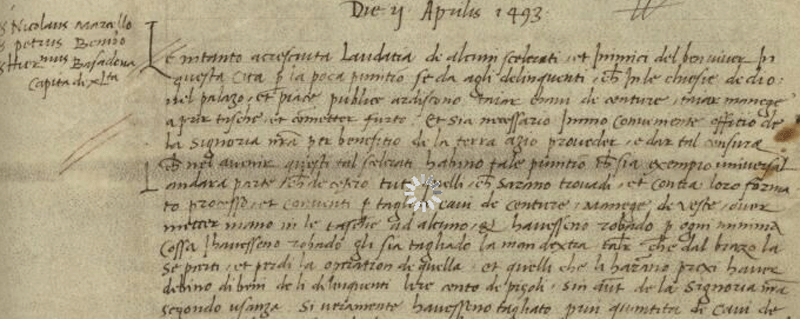 Die ij Aprilis 1493
s Nicolaus Marcello
s petrus Bembo
s Hiermus Basadona
Capita de xLta
Le intanto acresciuta Laudatia de alcuni scelerati, et Inimici del ben viver In
questa Cita p la poca punitio se da agli delinquenti, ch In le chiesie de dio:
nel palazo, et piace publice ardiscono taiar cimi de centure, taiar manege
aprir tasche, et cometter furti. Et sia necessario Immo Conveniente officio de
la Signoria nra per beneficio de la terra a zio proveder, e dar tal censura
ch nel avenir questi tal scelerati habino tale punitio ch sia exempio universal
andara parte ch de cetero tuti quelli, ch sarano trovadi, et contra loro forma
to processo, et convinti p tagliar cavi de centure, Manege de veste, over
metter mano in le tasche ad alcuno, havesseno robado p ogni minima
Cossa havesseno robado gli sia tagliado la man dextra che dal brazo la
se parti, et perdi la operation de quella. et quelli che li harano presi haver
debino di beni de li delinquenti lire cento de pizoli. sin aut de la Signoria nra
segondo usanza. Si veramente havesseno tagliato quantita de Cavi de